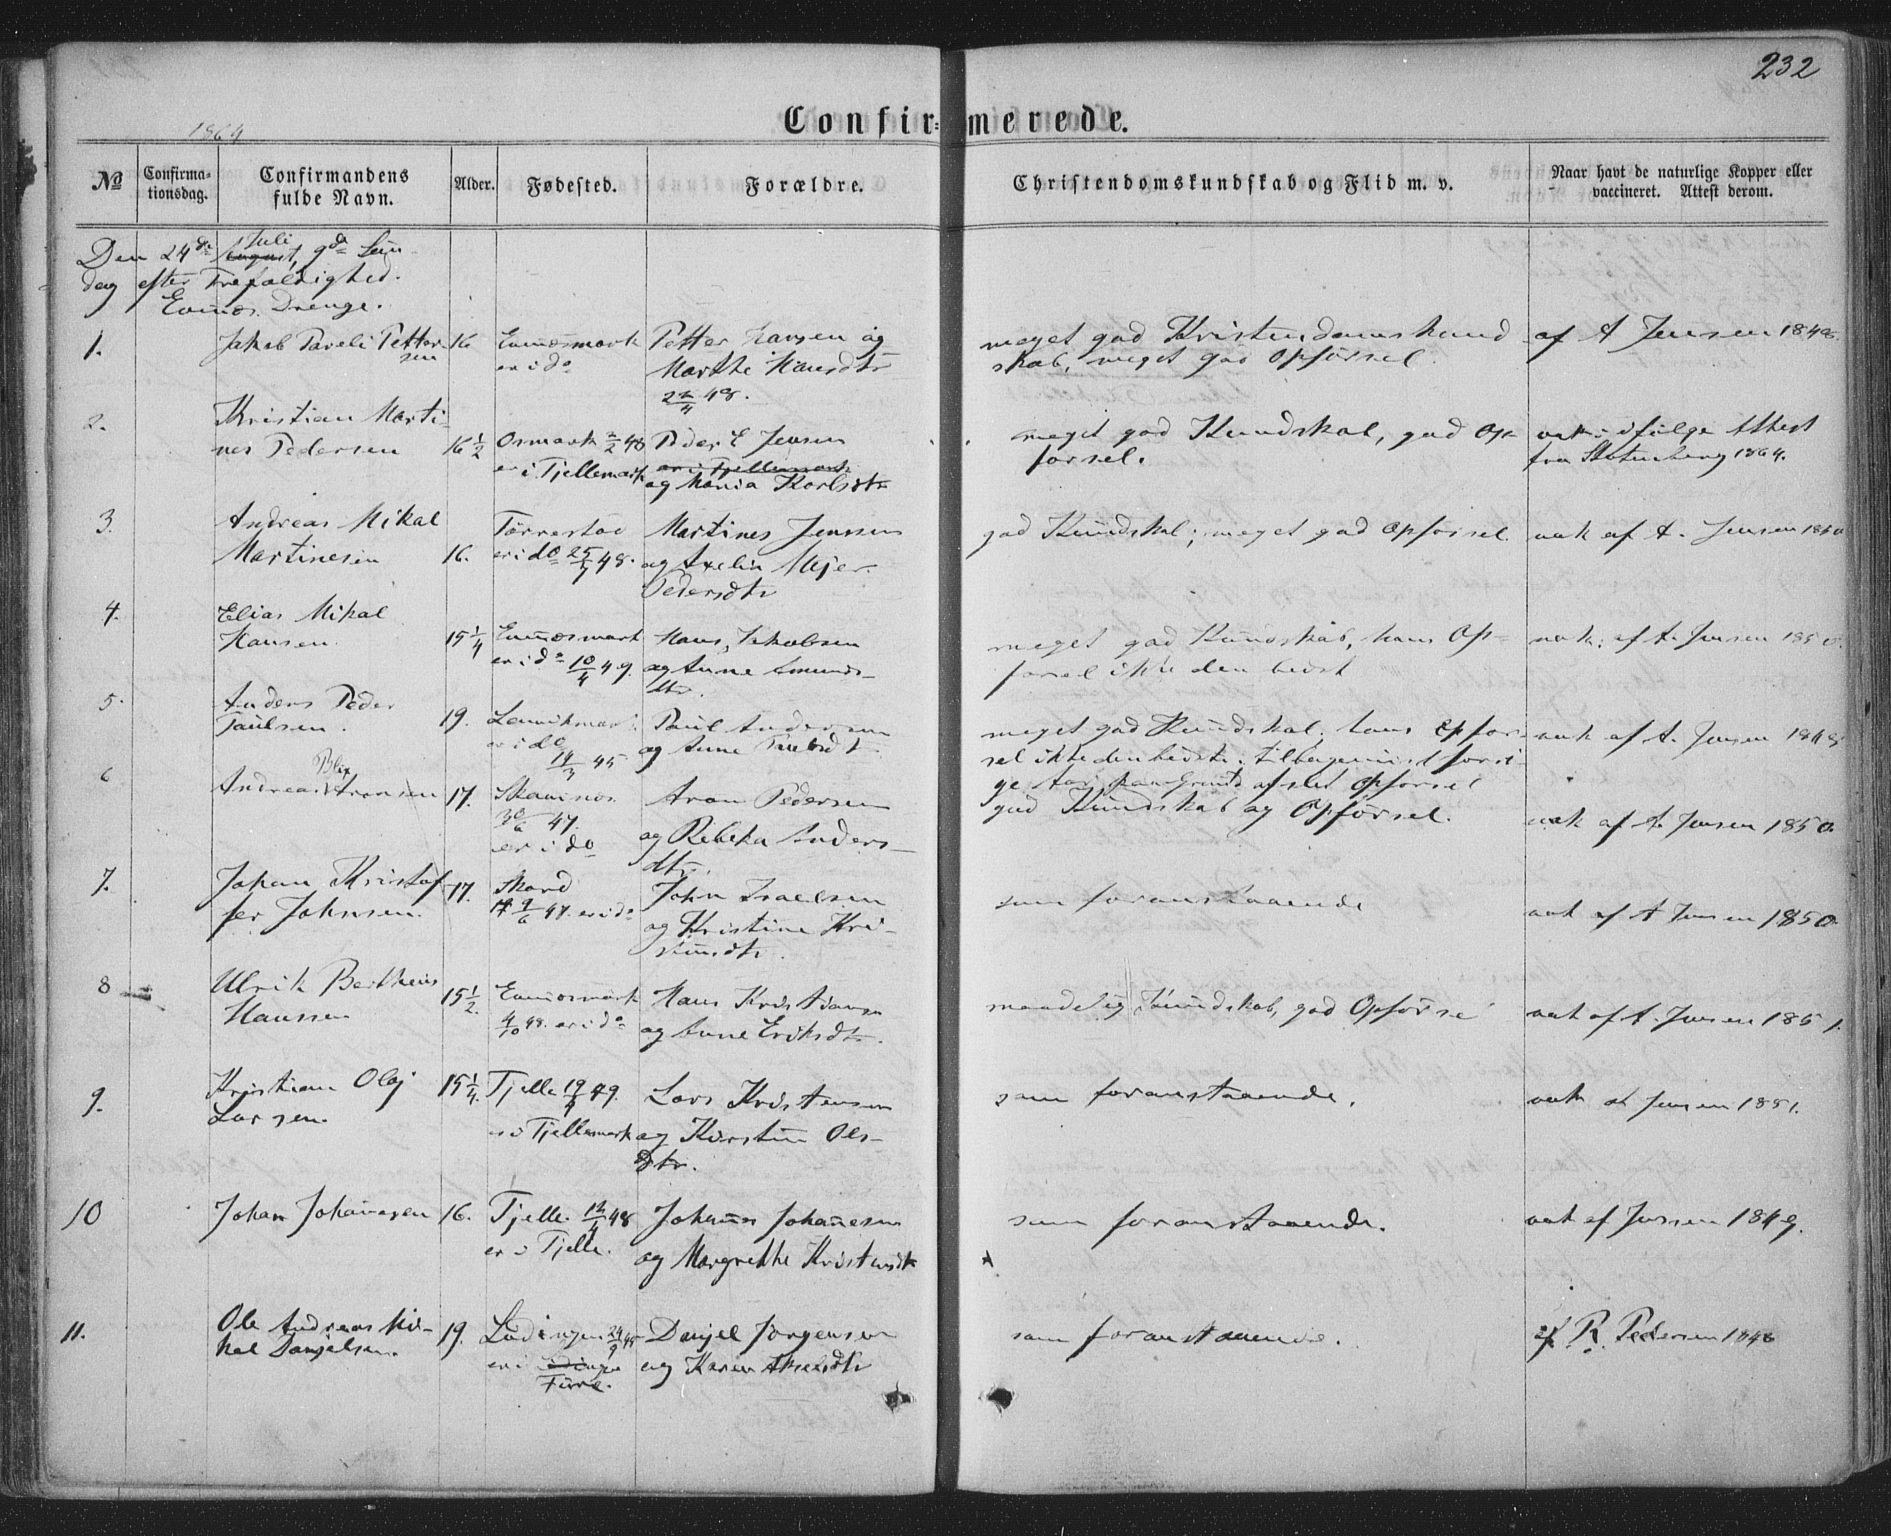 232
1864
Confir=merede.
№
Confirma-
tionsdag.
Confirmandens
fulde Navn.
Alder.
Fødested.
Forældre.
Christendomskundskab og Flid m. v.
Naar havt de naturlige Kopper eller
vaccineret. Attest derom.
Juli
Den 24de August, 9de Sün
dag efter Trefaldighed.
Drenge.
1. Jakob Petter 16 Petter Hansen og meget god Kristendomskund af A Jensen
sen er i do Marthe Hansdtr skab, meget god Opførsel.
2/4 48.
2. Kristian Marti-
nes Pedersen 16 1/2 Osmark 2/2 48 Peder E Jensen meget god Kundskab, god Op- vak: ifølge Attest
er i Tjellemark er i Tjellemark førsel. fra 1864.
og Maria Karlsdtr
3. Andreas Mikal Martines Jenssen god Kundskab; meget god Opførsel vak af A. Jensen 1850
Martinesen 16. er i do 25/7 48. og Axelin Mejer
Pedersdtr
4. Elias Mikal
Hansen. 15 1/4 Hans Jakobsen meget god Kundskab, hans Op- vak. af A. Jensen 1850.
er i do 10/4 49. og Anne Amunds- førsel ikke den bedst
dtr.
5. Anders Peder
Paulsen. 19. Paul Andersen meget god Kundskab; hans Opfør- vak af A. Jensen
er i do og Anne sel ikke den bedste; tilbagevist forri-
14/3 45 ge Aar paa Grund af slet Opførsel
6 Blix
Andreas Aronsen 17. Aron Pedersen god Kundskab og Opførsel. vak af A. Jensen 1850.
30/6 47. og Rebeka Anders-
er i do dtr.
7. Johan Kristof- 17. John Israelsen som foranstaaende vak af A Jensen 1850.
fer Johnsen. 9/6 47. er i do og Kristine Kri-
8 Ulrik Bertheus
Hanssen 15 1/2. Hans Kristiansen maadelig Kundskab, god Opførsel vak af A. Jensen 1851.
4/10 48. er i do og Anne Eriksdtr.
9. Kristian Olaj 15 1/4. Tjelle 19/4 49. Lars Kristensen som foranstaaende. vak af Jensen 1851.
Larsen. er i Tjellemark og Kirsten Ols-
dtr.
10 Johan Johannesen 16. Tjelle 48 Johannes Johannesen som foranstaaende. vak af Jensen 1849.
er i Tjelle. og Margrethe Kristensdtr
11. Ole Andreas Mi-
kal Danjelsen. 19. Lødingen 24/9 45 Danjel Jørgensen som foranstaaende. af R. Pedersen
er i Lødingen og Karen